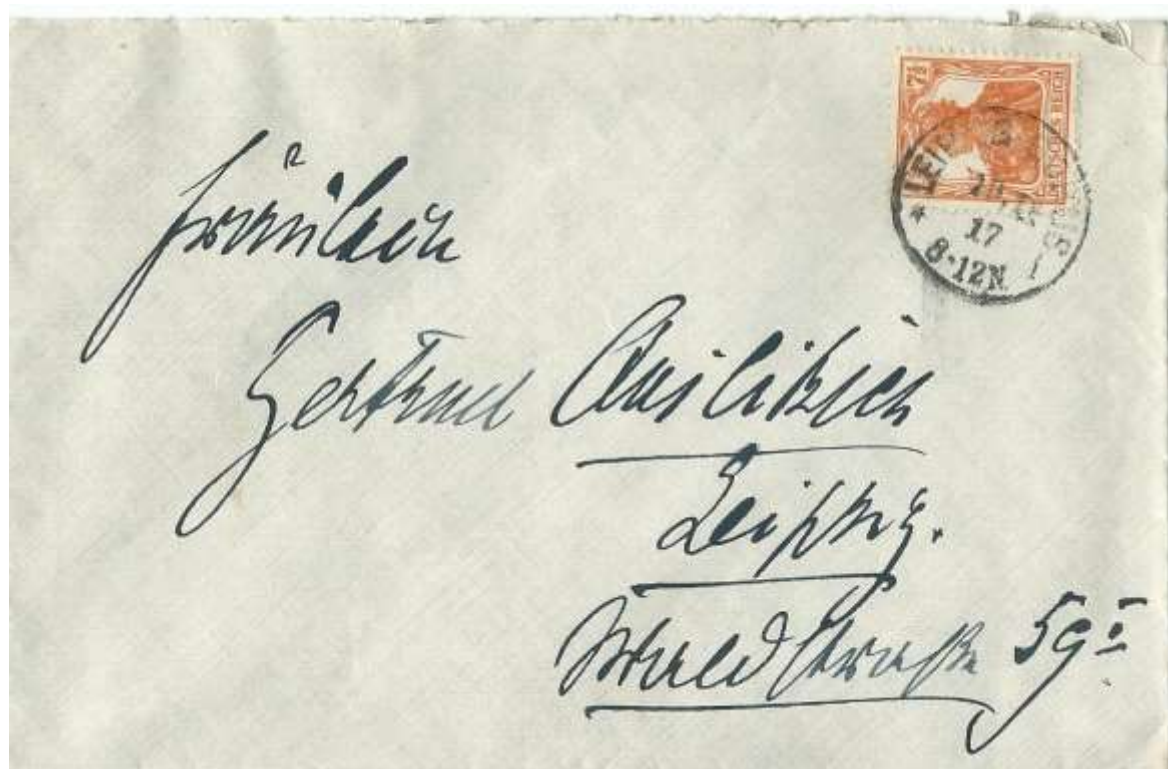 7½
DEUTSCHES REICH
LEIPZIG
17
8-12N
Fräulein
Gertrud
Leipzig.
Waldstraße 59 I